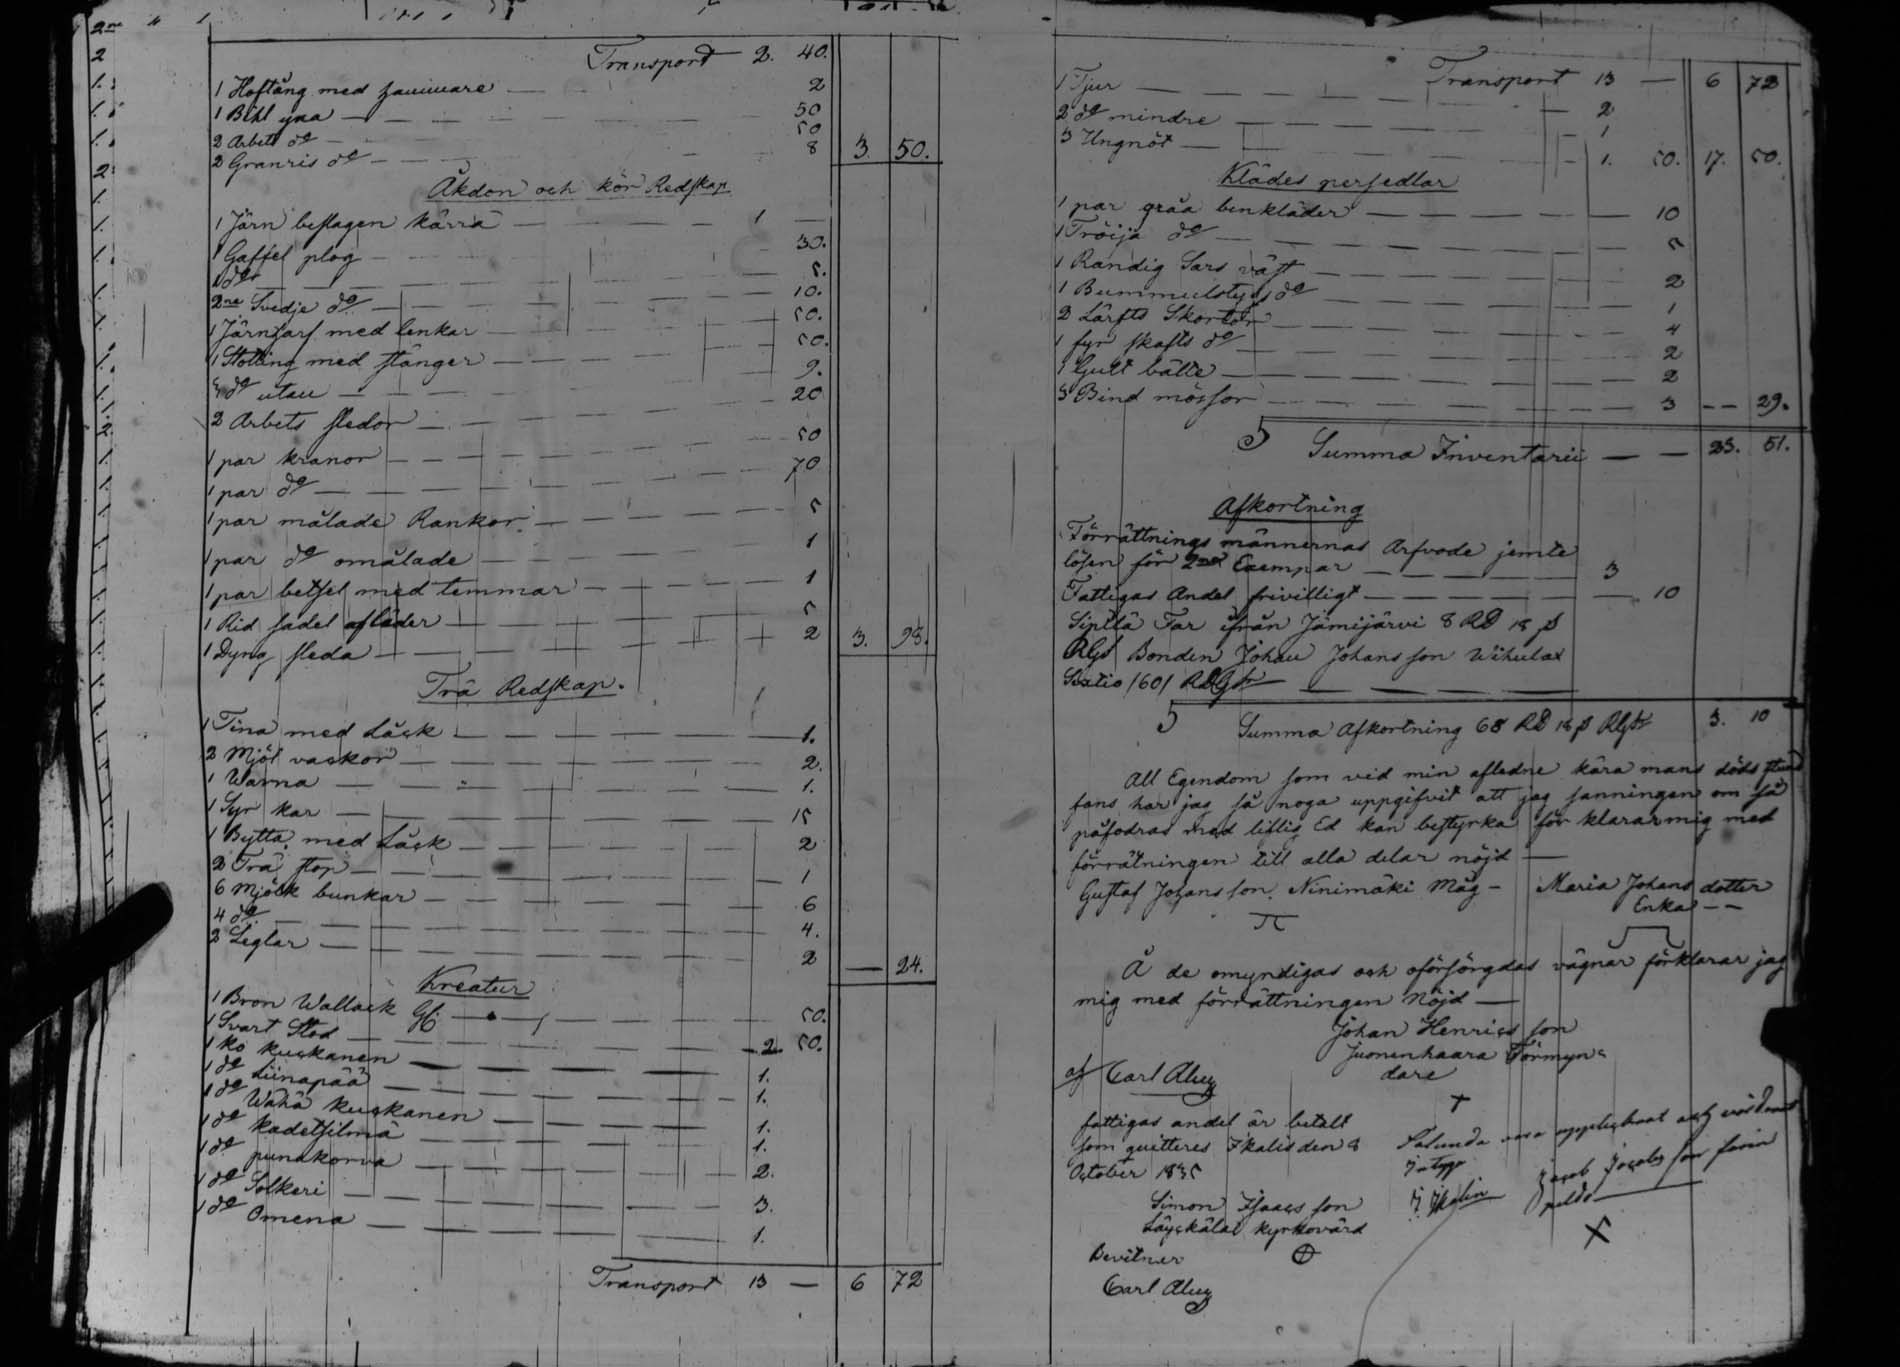 Transport 2. 40.
1 Hoftång med hammare 2
1 Bihl yxa 50
2 Arbets do 50
2 Granris do 8 3. 50.
Åkdon och kör Redskap
1 Järn beslagen kärra 1 —
1 Gaffel plog 30.
1 do 5.
2ne Svedje do 10.
1 Järnharf med lenkar 50.
1 Stötting med stänger 50.
do utan 9.
2 Arbets sledor 20
1 par kranor 50
1 par do 70
1 par målade Rankor 5
1 par do omålade 1
1 par betsel med temmar 1
1 Rid sadel af läder 5
1 Dyng sleda 2 3. 98.
Trä Redskap.
1 Tina med Låck 1.
2 Mjöl vackor 2.
1 Wanna 1.
1 Syr kar 15
1 Bytta med Låck 2
2 Trä stop 1
6 Mjölk bunkar 6
4 do 4.
2 Leglar 2 — 24.
Kreatur
1 Bron Wallack 50.
1 Svart Stod 2 50.
1 ko kuckanen 1.
1 do Liinapää 1.
1 do Wähä kuckanen 1.
1 do kadetsilmä 1.
1 do punakorva 2.
1 do Solkeri 3.
1 do Omena 1.
Transport 13 — 6 72
Transport 13 — 6 72
1 Tjur 2
2 do mindre 1
3 Ungnöt 1. 50. 17. 50.
Klädes persedlar
1 par gråa benkläder 10
1 Tröija do 5
1 Randig Sars väst 2
1 Bummulstygs do 1
2 Lärfts Skortor 4
1 fyr skafts do 2
1 Gult bälte 2
3 Bind mössor 3 — 29.
Summa Inventarii — — 23. 51.
Afkortning
Förrättnings männernas Arfvode jemte
lösen för 2ne Exempar 3
Fattigas Andel frivilligt 10
Sipilä Far ifrån Jämijärvi 8 RD 18 ß
RGs Bonden Johan Johansson Wihulax
/60/ RDGs
Summa Afkortning 68 RD 18 ß RGs 3. 10
All Egendom som vid min afledne kära mans döds stund
fans har jag så noga uppgifvit att jag sanningen om så
påfodras med liflig Ed kan bestyrka för klarar mig med
förrätningen till alla delar nöjd —
Gustaf Johansson Ninimäki Måg — Maria Johans dotter
Enka —
Å de omyndigas och oförsörgdas vägnar förklarar jag
mig med förrättningen nöjd —
Johan Henricsson
Juonenhaara Förmyn-
dare
af Carl Aluy
fattigas andel är betalt
som quitteres Ikalis den 8
October 1835
Simon Isaacsson
kyrkovärd
Bevitner
Carl Aluy
Sålunda vara
Jacob Jacobsson